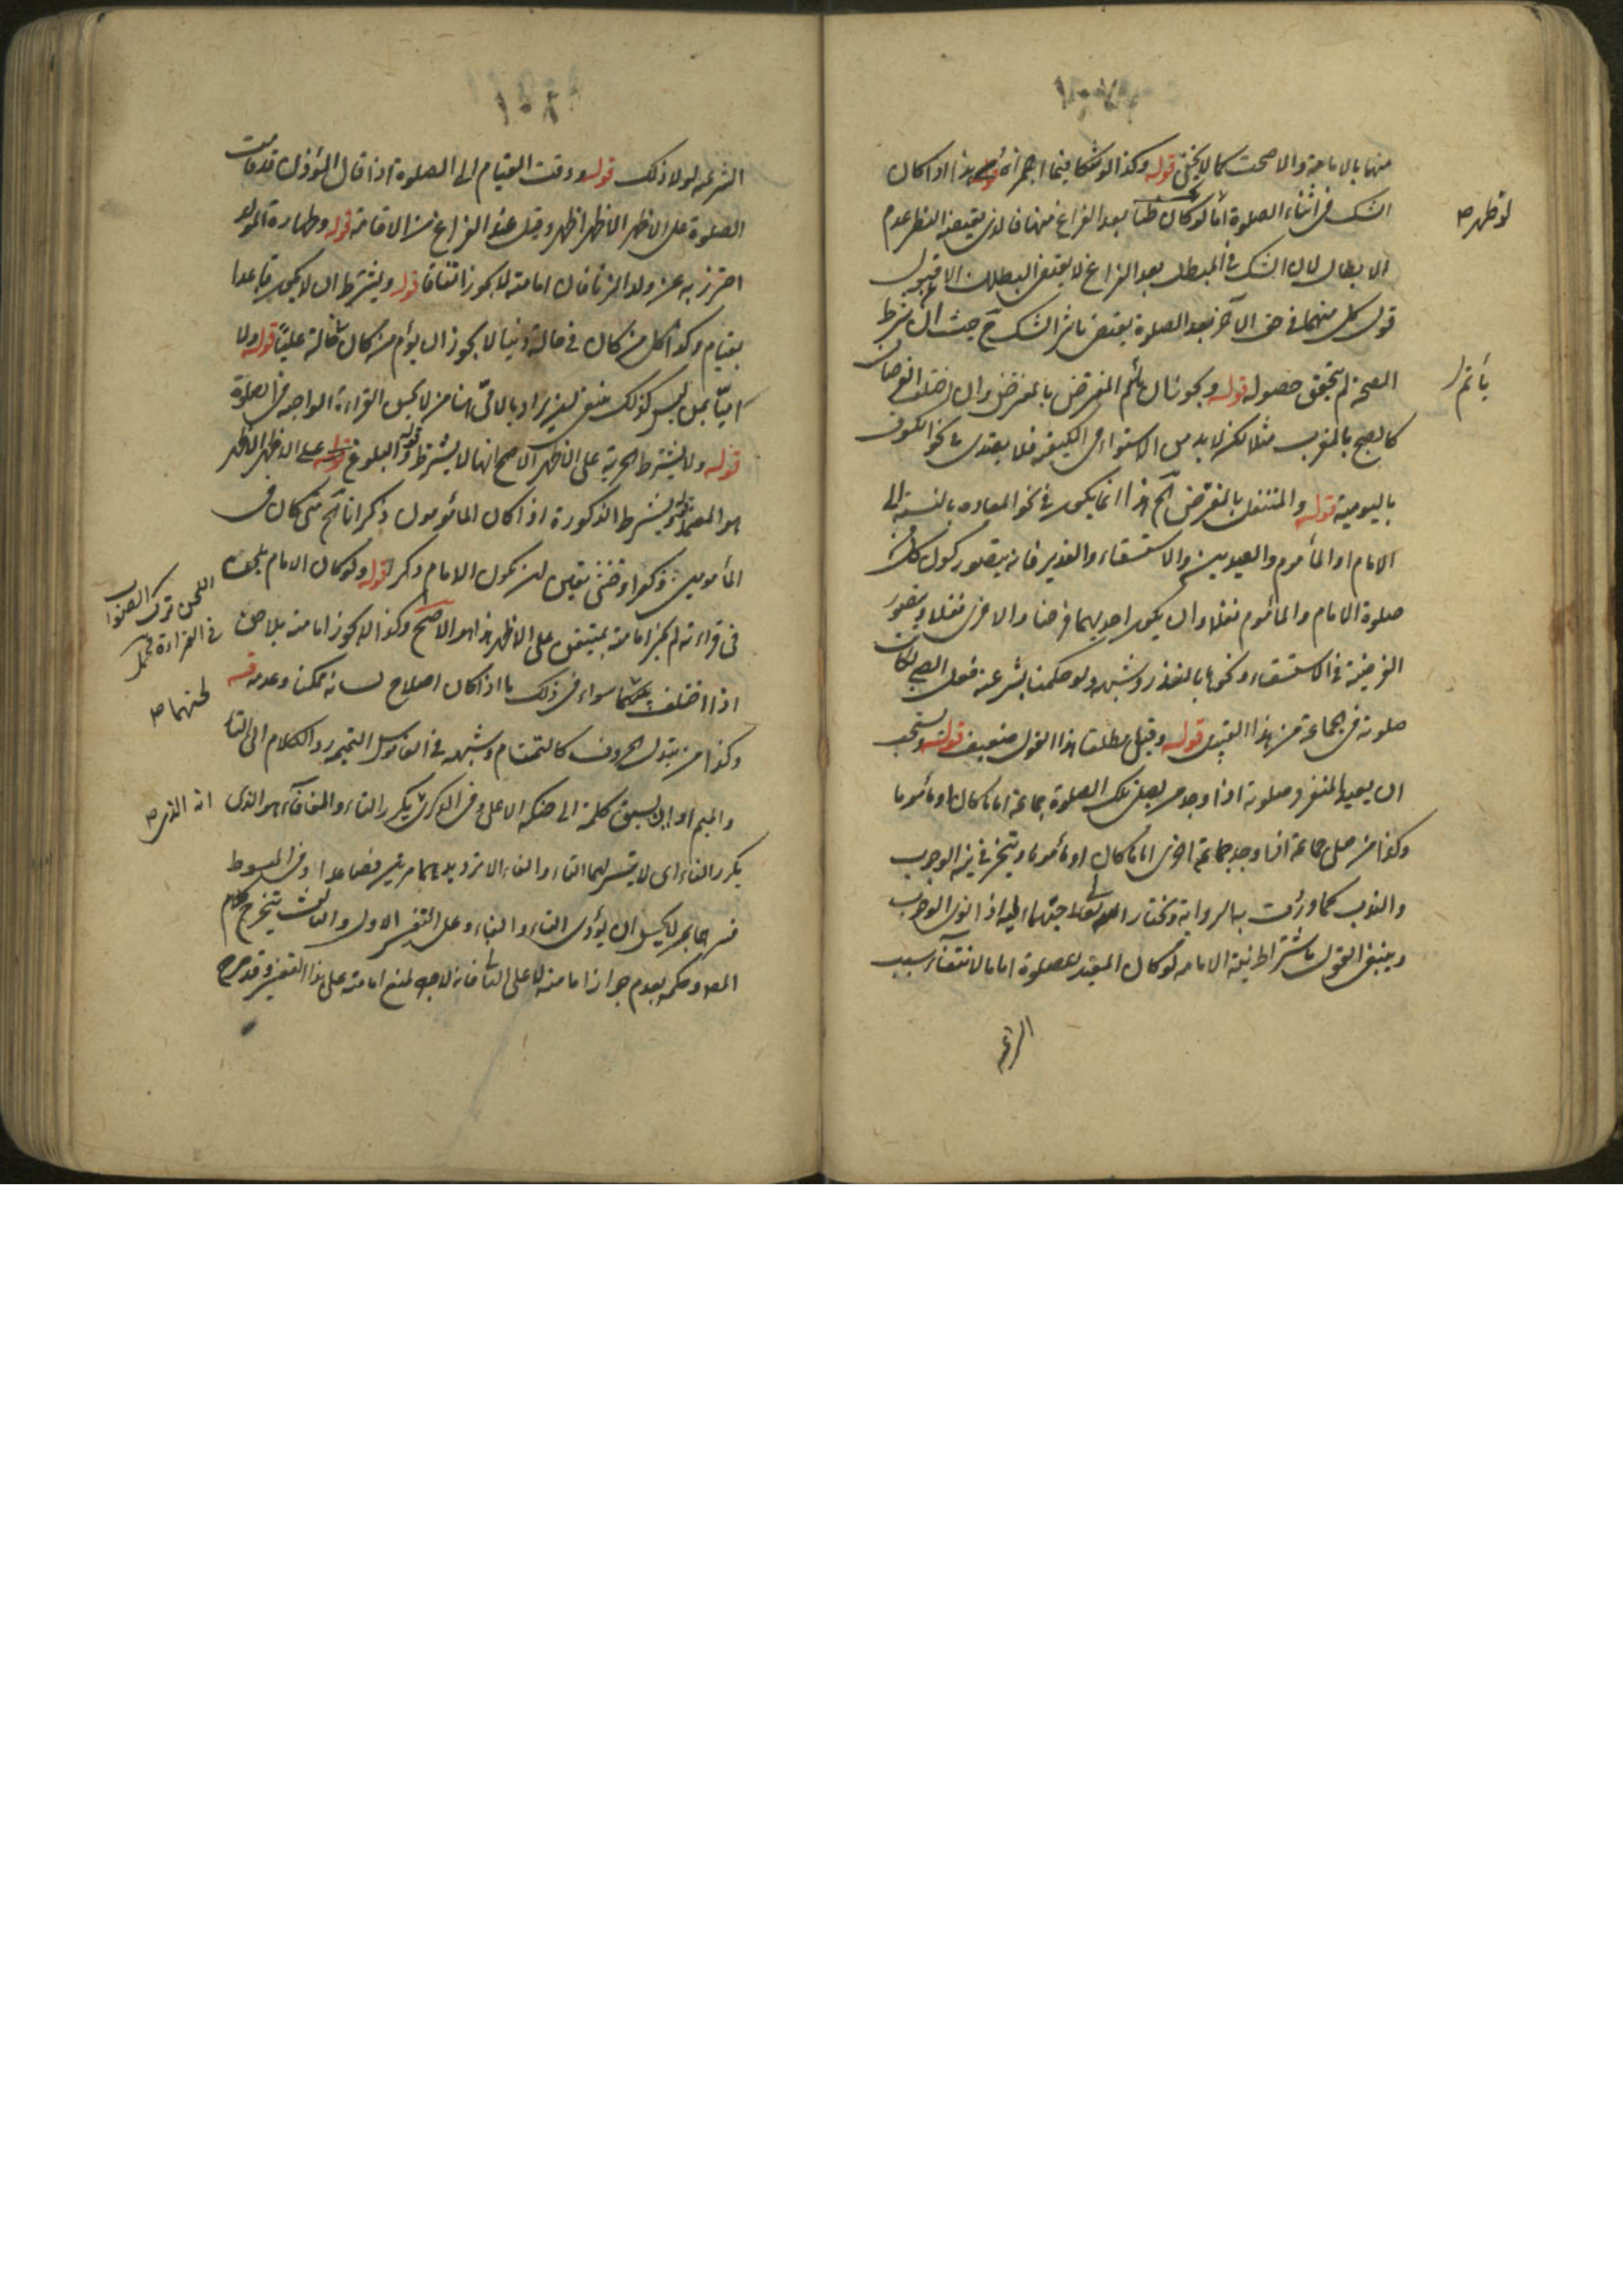 منها بالامامة والا صحت كما لا يخفى قوله وكذا لو شكا فيما اضمراه قوله هذا اذا كان
الشك في اثناء الصلوة اما لو كان بعد الفراغ منها فالذي يقتضيه النظر عدم
لو ظهر
الابطال لان الشك في المبطل بعد الفراغ لا يقتضي البطلان الا ان قبول
قول كل منهما في حق الآخر بعد الصلوة يقتضي تاثير الشك ح حيث ان شرط
الصحة لم يتحقق حصوله قوله ويجوز ان يأتم المفترض بالمفترض وان اختلف الفرضان
يأتم
كالصبح بالمغرب مثلا لكن لابد من الاستواء في الكيفية فلا يقتدى نحو الكسوف
باليومية قوله والمتنفل بالمفترض الخ هذا انما يكون في نحو المعادة بالنسبة الى
الامام او المأموم والعيدين والاستسقاء والغدير فانه يتصور كون كل من
صلوة الامام والماموم نفلا وان يكون احديهما فرضا والاخرى نفلا ويتصور
الفريضة في الاستسقاء ونحوها بالنذر وشبهه ولو حكمنا بشرعية فعل الصبي كانت
صلوته في الجماعة من هذا القبيل قوله وقيل مطلقا هذا القول ضعيف قوله ويستحب
ان يعيد المنفرد صلوته اذا وجد من يصلي تلك الصلوة جماعة اماما كان او مأموما
وكذا من صلى جماعة اذا وجد جماعة اخرى اماما كان او مأموما ويتخير في نية الوجوب
والندب كما وردت به الرواية ويختار الله تعالى احبهما اليه اذا نوى الوجوب
وينبغي القول باشتراط نية الامامة لو كان المعيد للصلوة اماما لانتفاء سبب
الشرعية
الشرعية لولا ذلك قوله ووقت القيام الى الصلوة اذا قال المؤذن قد قامت
الصلوة على الاظهر الاظهر اظهر وقيل عند الفراغ من الاقامة قوله وطهارة المولد
احترز به عن ولد الزنا فان امامته لا يجوز اتفاقا قوله ويشترط ان لا يكون قاعدا
بقيام وكذا كل من كان في حالة دنيا لا يجوز ان يؤم من كان في حالة عليا قوله ولا
اميا بمن ليس كذلك ينبغي ان يراد بالامي هنا من لا يحسن القراءة الواجبة في الصلوة
قوله ولا يشترط الحرية على الاظهر الاصح انها لا يشترط قوله والبلوغ على الاظهر الاظهر
هو المعتمد قوله ويشترط الذكورة اذا كان المأمومون ذكرانا الخ متى كان في
المأمومين ذكر او خنثى تعين ان يكون الامام ذكر قوله ولو كان الامام يلحن
اللحن ترك الصواب
في القراءة
في قراءته لم يجز امامته بمتقن على الاظهر هذا هو الاصح وكذا لا يجوز امامته بلاحن
اذا اختلف سواء في ذلك ما اذا كان اصلاح لسانه ممكنا وعدمه قوله
لحنهما
وكذا من يبدل الحروف كالتمتام وشبهه في القاموس التمتمة رد الكلام الى التاء
والميم او ان يسبق كلمة الى حنكه الاعلى وفي الذكرى يكرر التاء والفأفاء هو الذي
انه الذي
يكرر الفاء اي لا يتيسر لهما التاء والفاء الا بترديدهما مرتين فصاعدا وفي المبسوط
فسرهما بمن لا يحسن ان يؤدي التاء والفاء وعلى التفسير الاول والثالث يتخرج كلام
المص وحكمه بعدم جواز امامته لا على الثاني فانه لا وجه لمنع امامته على هذا التفسير وقد صرح